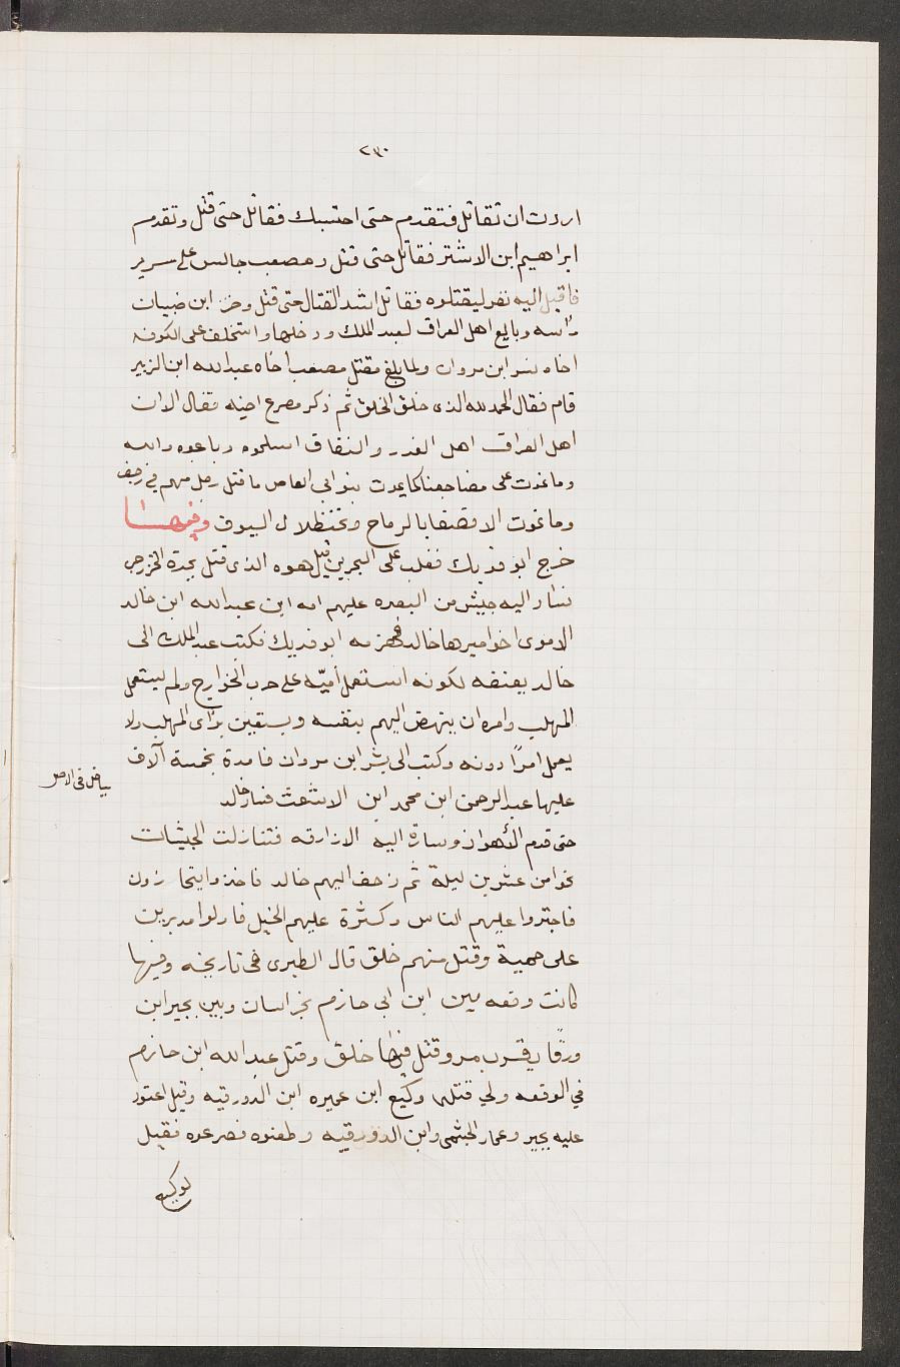 ٢٣٠
اردت ان تقاتل فتقدم حتى احتسبك فقاتل حتى قتل وتقدم
ابراهيم ابن الاشتر فقاتل حتى قتل ومصعب جالس على سرير
فاقبل اليه نفر ليقتلوه فقاتل اشد القتال حتى قتل وحز ابن ضبيان
راسه وبايع اهل العراق لعبد الملك ودخلها واستخلف على الكوفه
اخاه بشر ابن مروان ولما بلغ مقتل مصعب اخاه عبد الله ابن الزبير
قام فقال الحمد لله الذى خلق الخلق ثم ذكر مصرع اخيه فقال الا ان
اهل العراق اهل الغدر والنفاق اسلموه وباعوه والله
وما نموت على مضاجعنا كما يموت بنو ابى العاص ما قتل رجل منهم فى زحف
وما نموت الا قصفا بالرماح وتحت ظلال السيوف وفيها
خرج ابو فديك فغلب على البحرين قيل هوه الذى قتل نجدة الخزرجى
فسار اليه جيش من البصره عليهم اميه ابن عبد الله ابن خالد
الاموى اخو اميرها خالد فهزمه ابو فديك فكتب عبد الملك الى
خالد يعنفه لكونه استعمل أميّه على حرب الخوارج ولم يستعمل
المهلب وامره ان ينهض اليهم بنفسه ويستعين براى المهلب ولا
يعمل امرًا دونه وكتب الى بشر ابن مروان فامدة بخمسة آلاف
عليها عبد الرحمن ابن محمد ابن الاشعث فسار خالد
بياض فى الاصل
حتى قدم الأهواز وسارة اليه الازارقه فتنازلت الجيشات
نحوا من عشرين ليلة ثم زحف اليهم خالد فاخذوا ينحازون
فاجتروا عليهم الناس وكثرة عليهم الخيل فارلوا مدبرين
على حمية وقتل منهم خلق قال الطبرى فى تاريخه وفيها
كانت وقعه بين ابن ابى حازم بخراسان وبين بجير ابن
ورقا بقرب مرو قتل فيها خلق وقتل عبد الله ابن حازم
في الوقعه ولي قتلها وكيع ابن عميره ابن الدورقيه وقيل اعتور
عليه بجير وعمار الجشمى وابن الدورقيه وطعنوه فصرعوه فقيل
لوكيع